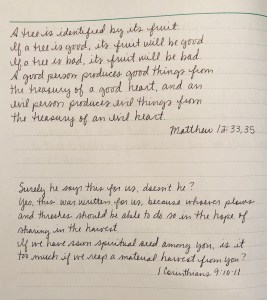 A tree is identified by its fruit
If a tree is good, its fruit will be good
If a tree is bad, its fruit will be bad.
A good person produces good things from
the treasury of a good heart, and an
evil person produces evil things from
the treasury of an evil heart.
Matthew 12:33,35
Surely he says this for us, doesn't he?
Yes, this was written for us, because whoever plows
and threshes should be able to do so in the hope of
sharing in the harvest
If we have sown spiritual seed among you, is it
too much if we reap a material harvest from you?
1 Corinthians 9:10-11